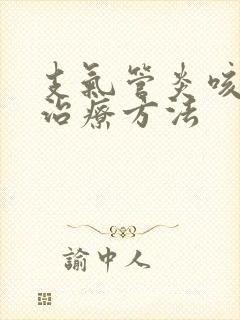 支氣管炎咳
治療方法
諭中人